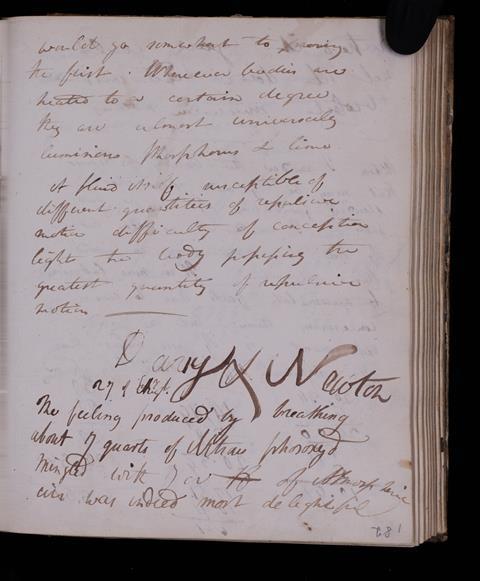 would go somewhat to proving
the first. Whenever bodies are
heated to a certain degree
they are almost universally
luminous Phosphorus & lime
A fluid itself susceptible of
different quantities of repulsive
motion difficulty of conception
light the body possessing the
greatest quantity of repulsive
motion
Davy & Newton
27 of
The feeling produced by breathing
about 7 quarts of Nitrous phosoxyd
mingled with 7 or of Atmospheric
air was indeed most delightful
181